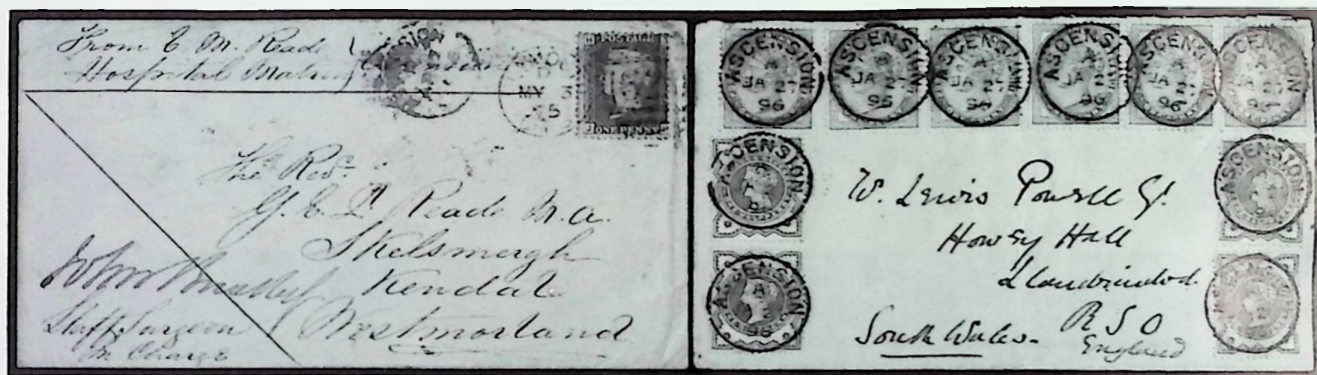 From C. M. Reade
Hospital
ASCENSION
MY 3
75
ONE PENNY
The Revd.
G. E. P. Reade M.A.
Skelsmergh
Kendal
Westmorland
John
Staff Surgeon
In Charge
ASCENSION
A
JA 27
96
ASCENSION
A
JA 27
96
ASCENSION
A
JA 27
96
ASCENSION
A
JA 27
96
ASCENSION
A
JA 27
96
ASCENSION
A
JA 27
96
ASCENSION
ASCENSION
ASCENSION
A
96
ASCENSION
W. Lewis Powell Esq.
Howey Hall
Llandrindod
R S O
South Wales.
England